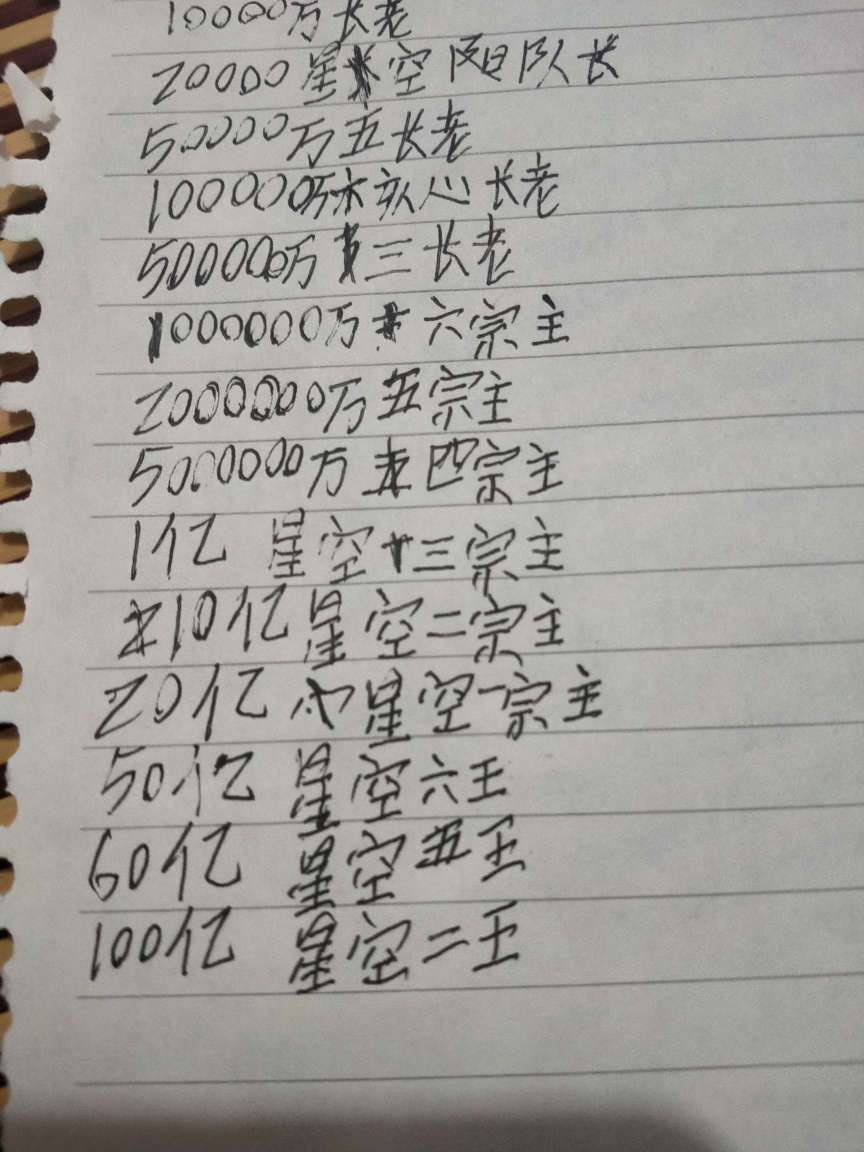 10000万长老
20000星空阳队长
50000万五长老
100000万木家人心长老
500000万三长老
1000000万六宗主
2000000万五宗主
5000000万四宗主
1亿 星空三宗主
10亿星空二宗主
20亿星空一宗主
50亿 星空六王
60亿 星空五王
100亿 星空二王